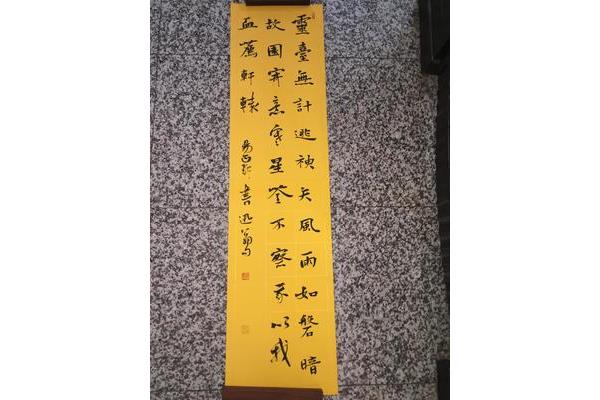 靈臺無計逃神矢風雨如磐暗
故園寄意寒星荃不察我以我
血薦軒轅
書迅翁句